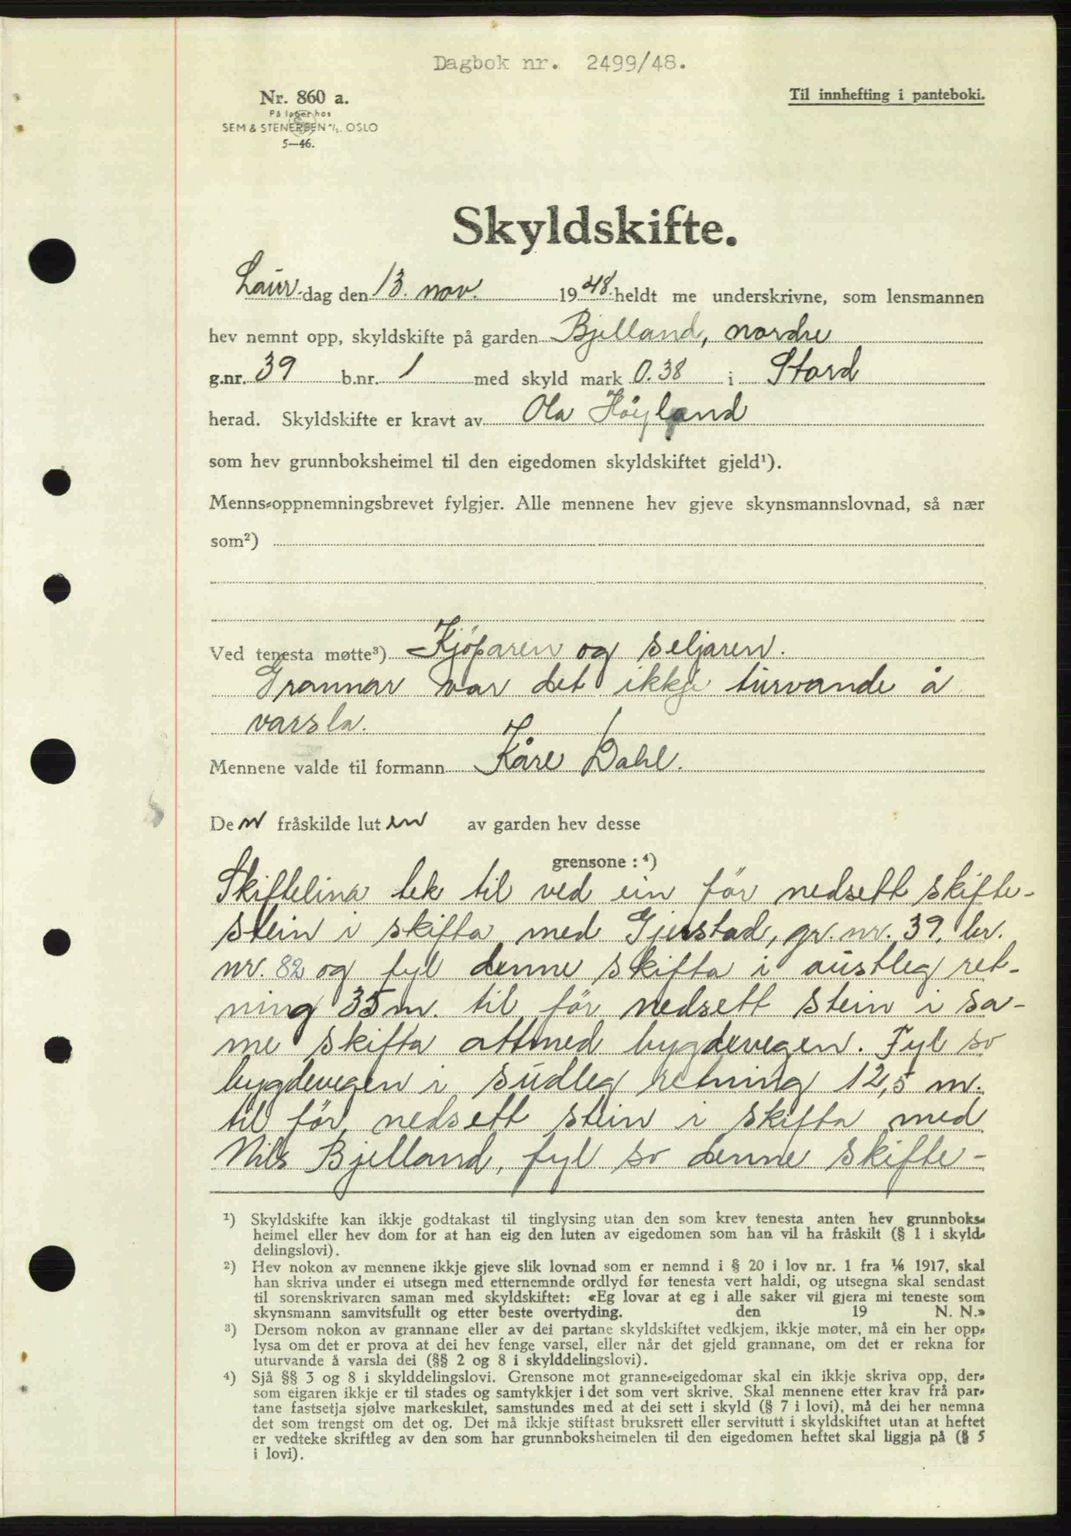 Dagbok nr. 2499/48.
Nr. 860 a.
Til innhefting i panteboki.
På lager hos
SEM & STENERSEN A/S. OSLO
5—46.
Skyldskifte.
Laur.dag den 13. nov. 1948. heldt me underskrivne, som lensmannen
hev nemnt opp, skyldskifte på garden Bjelland, nordre
g.nr. 39 b.nr. 1 med skyld mark 0.38 i Stord
herad. Skyldskifte er kravt av Ola Høyland
som hev grunnboksheimel til den eigedomen skyldskiftet gjeld¹).
Menns-oppnemningsbrevet fylgjer. Alle mennene hev gjeve skynsmannslovnad, så nær
som²)
Ved tenesta møtte³) Kjøparen og seljaren.
Grannar var det ikkje turvande å
varsla.
Mennene valde til formann Kåre Dahl.
Den fråskilde luten av garden hev desse
grensone : ⁴)
Skiftelina tek til ved ein før nedsett skifte-
stein i skifta med Gjerstad, gr. nr. 39, br.
nr. 82 og fyl denne skifta i austleg ret-
ning 35 m. til før nedsett stein i sa-
me skifta attmed bygdevegen. Fyl so
bygdevegen i sudleg retning 12,5 m.
til før nedsett stein i skifta med
Nils Bjelland, fyl so denne skifte-
¹) Skyldskifte kan ikkje godtakast til tinglysing utan den som krev tenesta anten hev grunnboks-
heimel eller hev dom for at han eig den luten av eigedomen som han vil ha fråskilt (§ 1 i skyld-
delingslovi).
²) Hev nokon av mennene ikkje gjeve slik lovnad som er nemnd i § 20 i lov nr. 1 fra ¹/₆ 1917, skal
han skriva under ei utsegn med etternemnde ordlyd før tenesta vert haldi, og utsegna skal sendast
til sorenskrivaren saman med skyldskiftet: «Eg lovar at eg i alle saker vil gjera mi teneste som
skynsmann samvitsfullt og etter beste overtyding. den 19 N. N.»
³) Dersom nokon av grannane eller av dei partane skyldskiftet vedkjem, ikkje møter, må ein her opp-
lysa om det er prova at dei hev fenge varsel, eller når det gjeld grannane, om det er rekna for
uturvande å varsla dei (§§ 2 og 8 i skylddelingslovi).
⁴) Sjå §§ 3 og 8 i skylddelingslovi. Grensone mot granne-eigedomar skal ein ikkje skriva opp, der-
som eigaren ikkje er til stades og samtykkjer i det som vert skrive. Skal mennene etter krav frå par-
tane fastsetja sjølve markeskilet, samstundes med at dei sett i skyld (§ 7 i lovi), må dei her nemna
det som trengst om det og. Det må ikkje stiftast bruksrett eller servitutt i skyldskiftet utan at heftet
er vedteke skriftleg av den som har grunnboksheimelen til den eigedomen heftet skal liggja på (§ 5
i lovi).